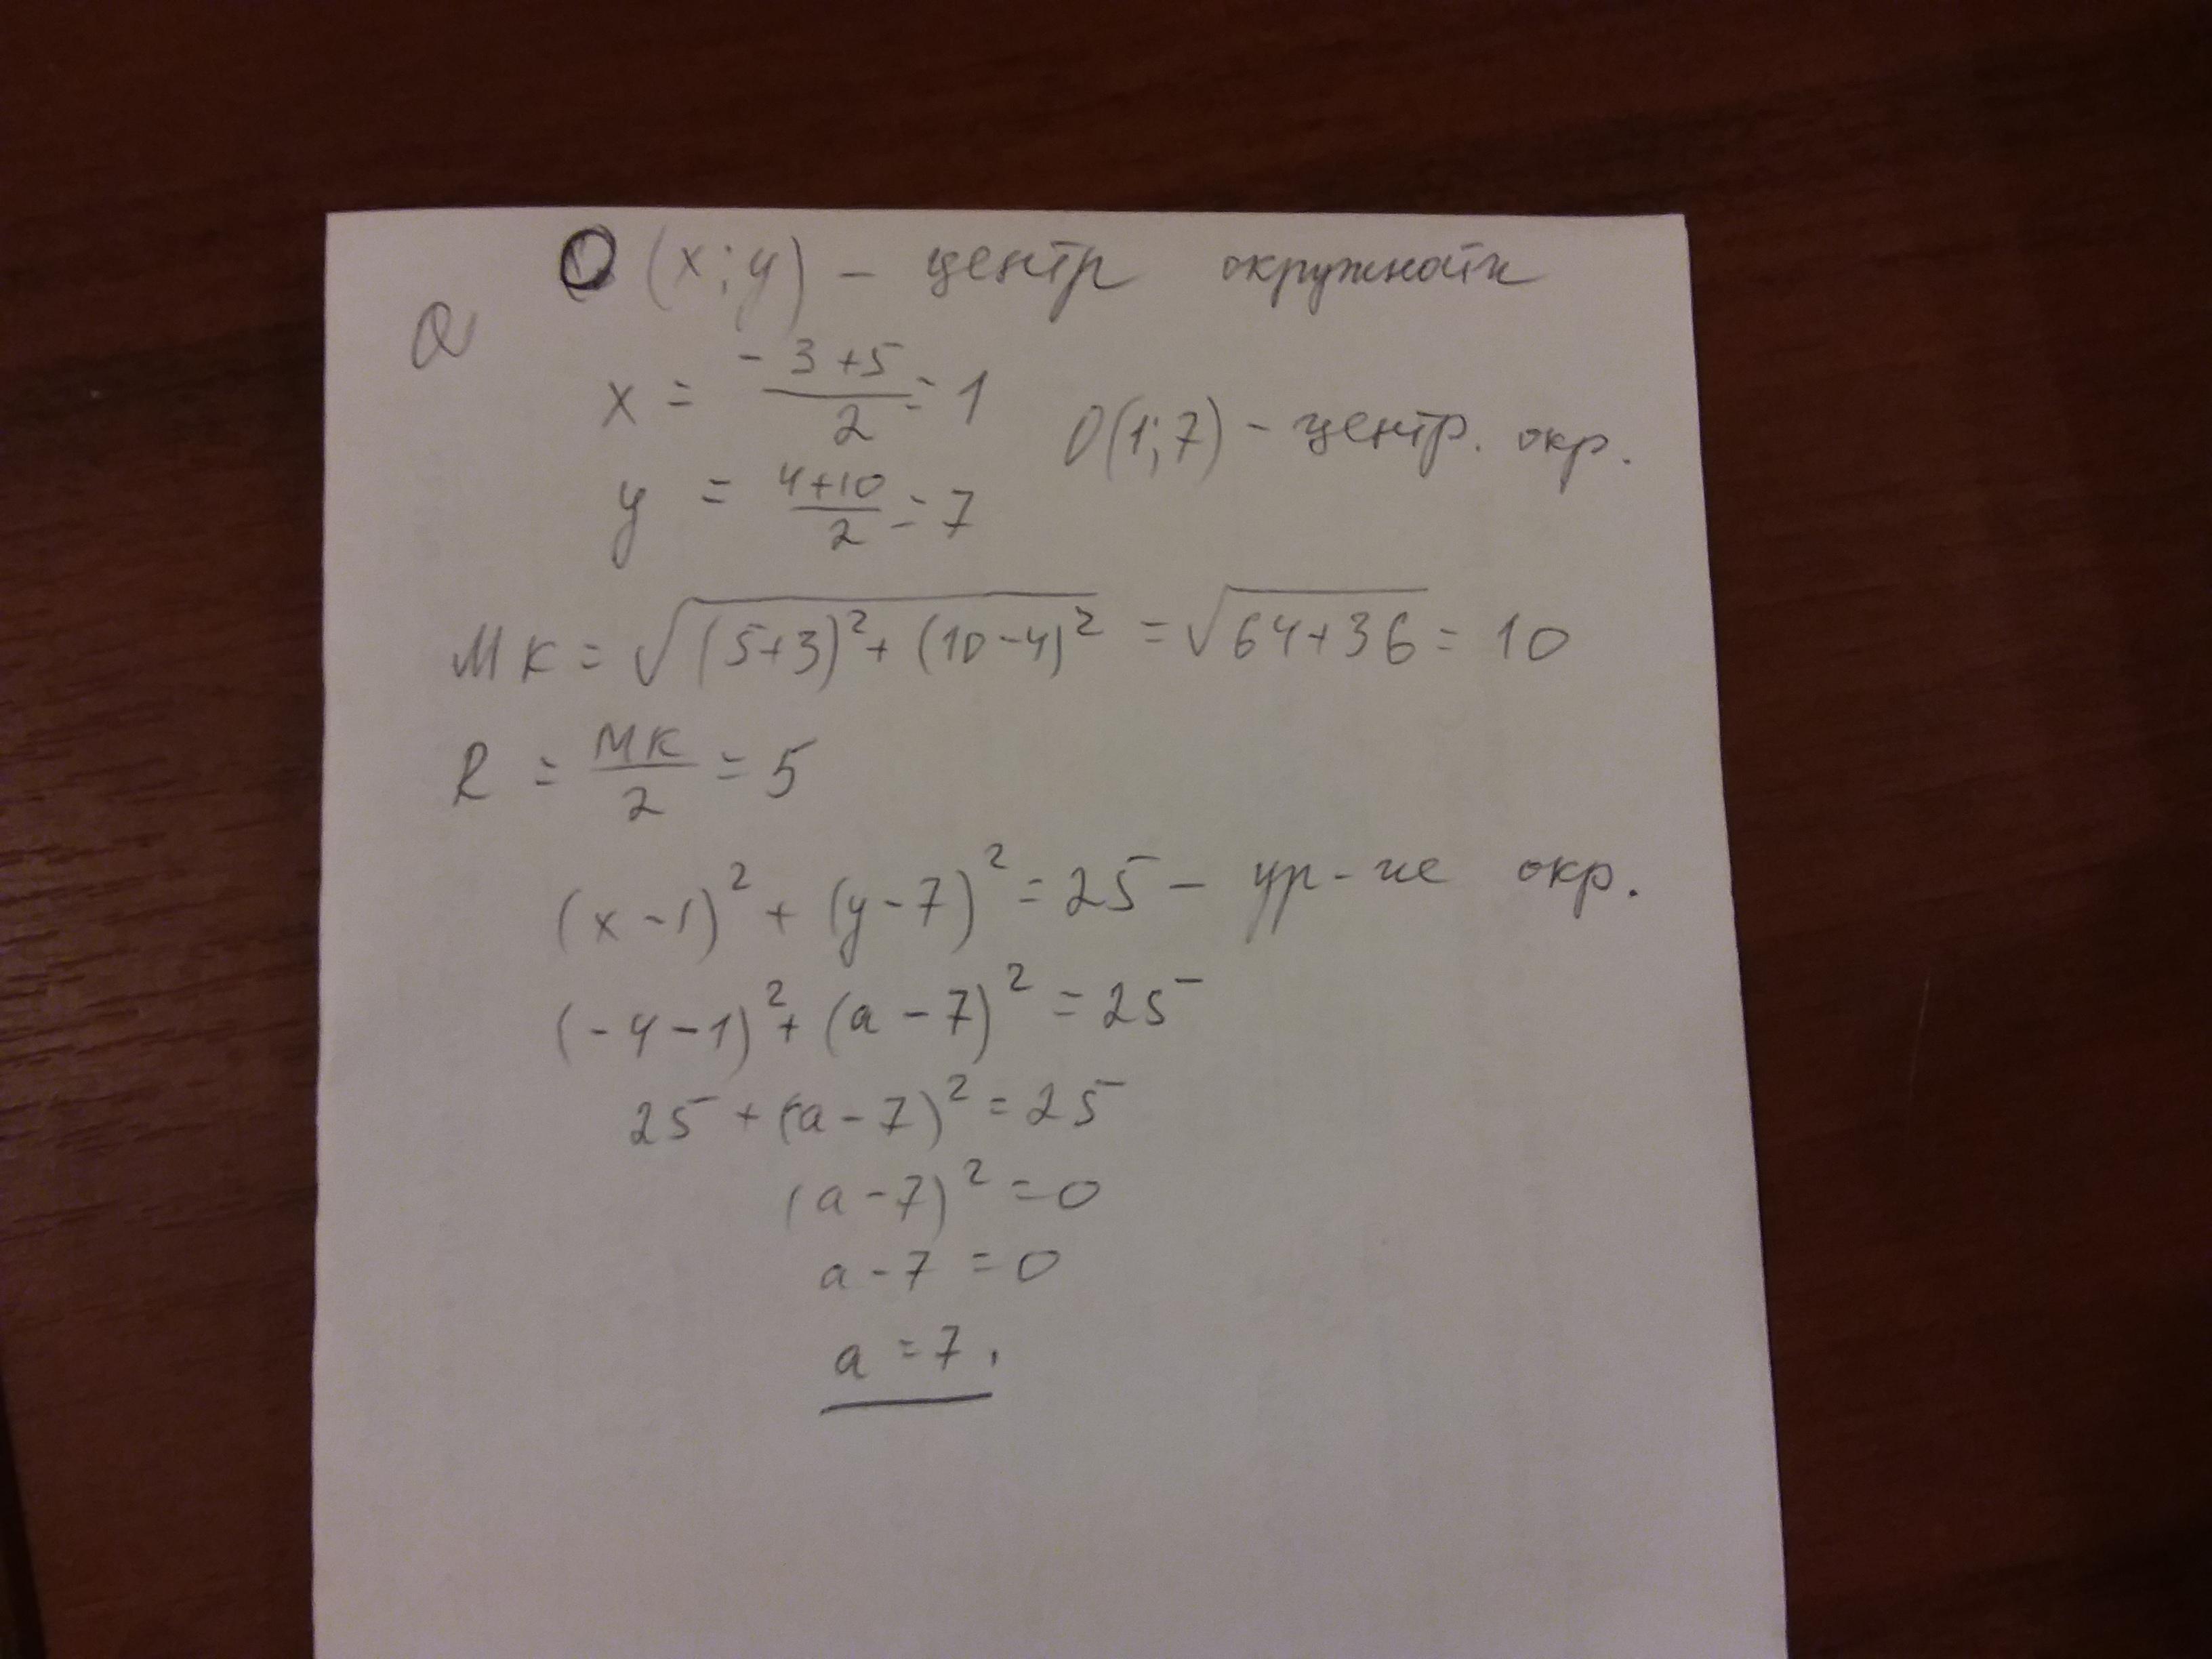 O (x; y) – центр окружности
x = (-3+5)/2 = 1
O(1; 7) – центр. окр.
y = (4+10)/2 = 7
MK = √((5+3)² + (10-4)²) = √(64+36) = 10
R = MK/2 = 5
(x-1)² + (y-7)² = 25 – ур-ие окр.
(-4-1)² + (a-7)² = 25
25 + (a-7)² = 25
(a-7)² = 0
a-7 = 0
a = 7.